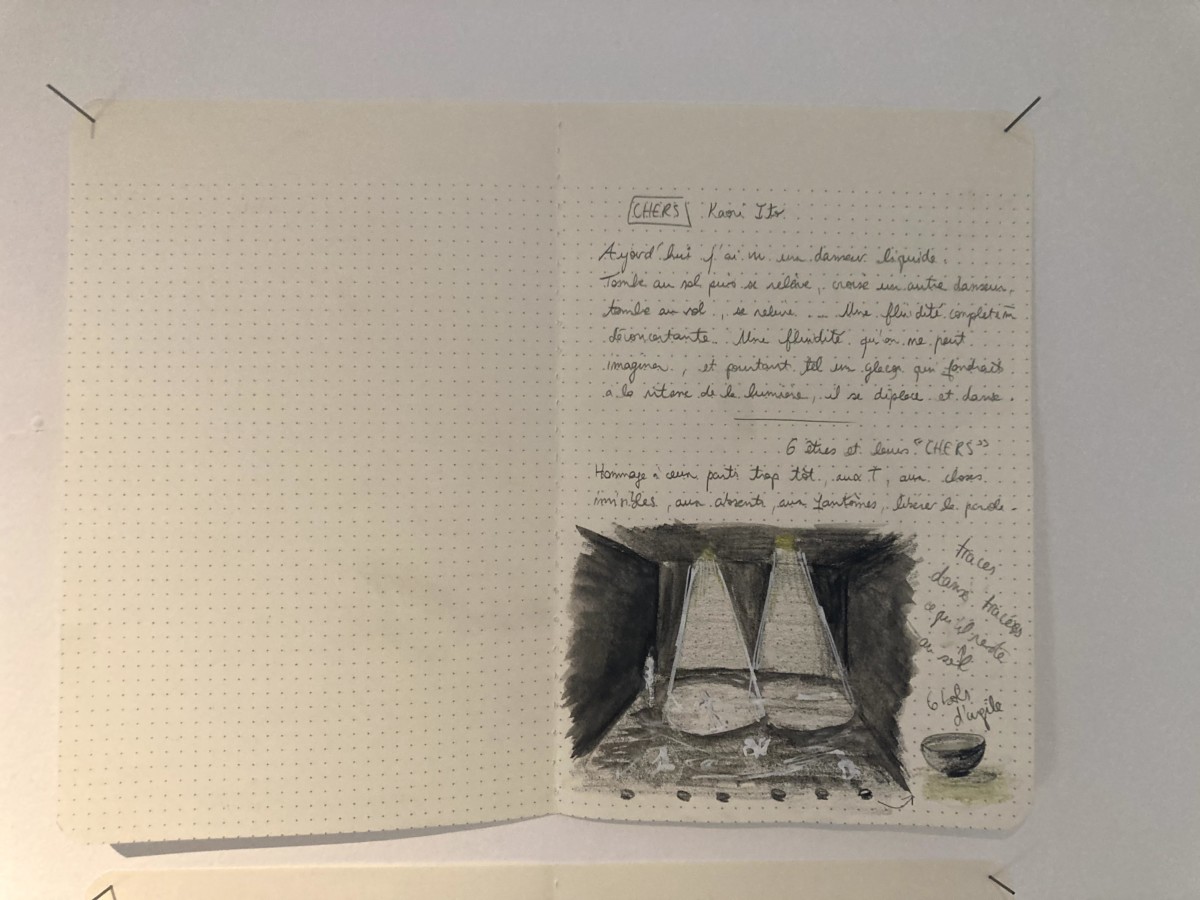 CHERS Kaori Ito
Aujourd'hui j'ai vu un danseur liquide.
Tombe au sol puis se relève, croise un autre danseur,
tombe au sol, se relève... Une fluidité complètem
déconcertante. Une fluidité qu'on ne peut
imaginer, et pourtant tel un glaçon qui fondrait
a la vitesse de la lumière, il se déplace et danse.
6 êtres et leurs "CHERS"
Hommage à ceux parti trop tôt, aux T, aux choses
invisibles, aux absents, aux fantômes, libérer la parole.
traces
danse, tracées
ce qu'il reste
au sol
6 bols
d'argile